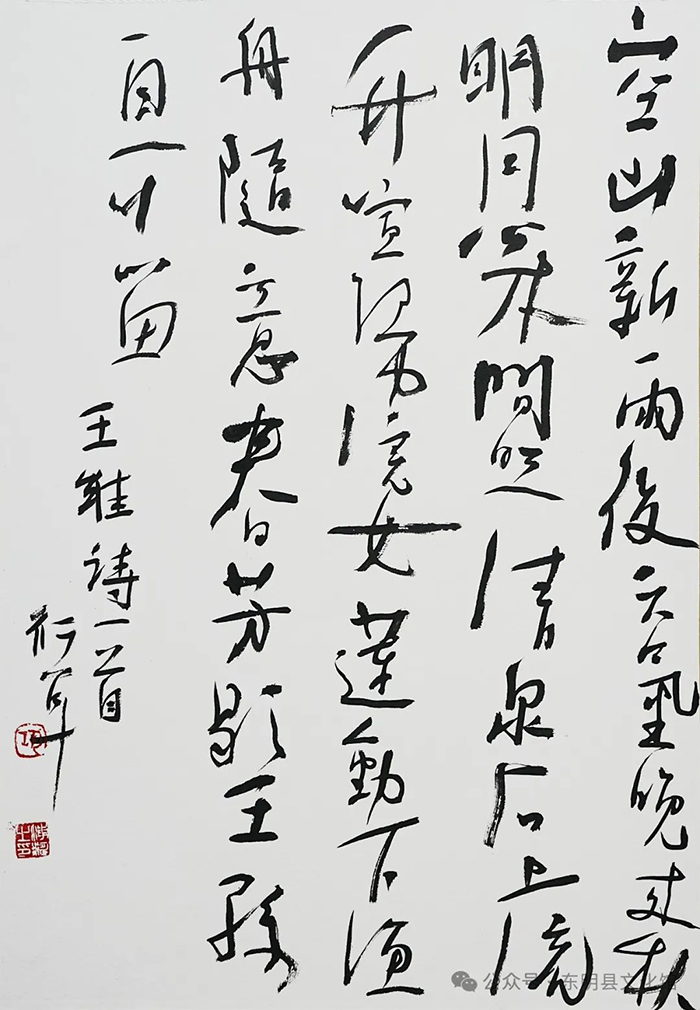 空山新雨後天氣晚來秋
明月松間照清泉石上流
竹喧歸浣女蓮動下漁
舟隨意春芳歇王孫
自可留
王維詩一首
公众号·东明县文化馆